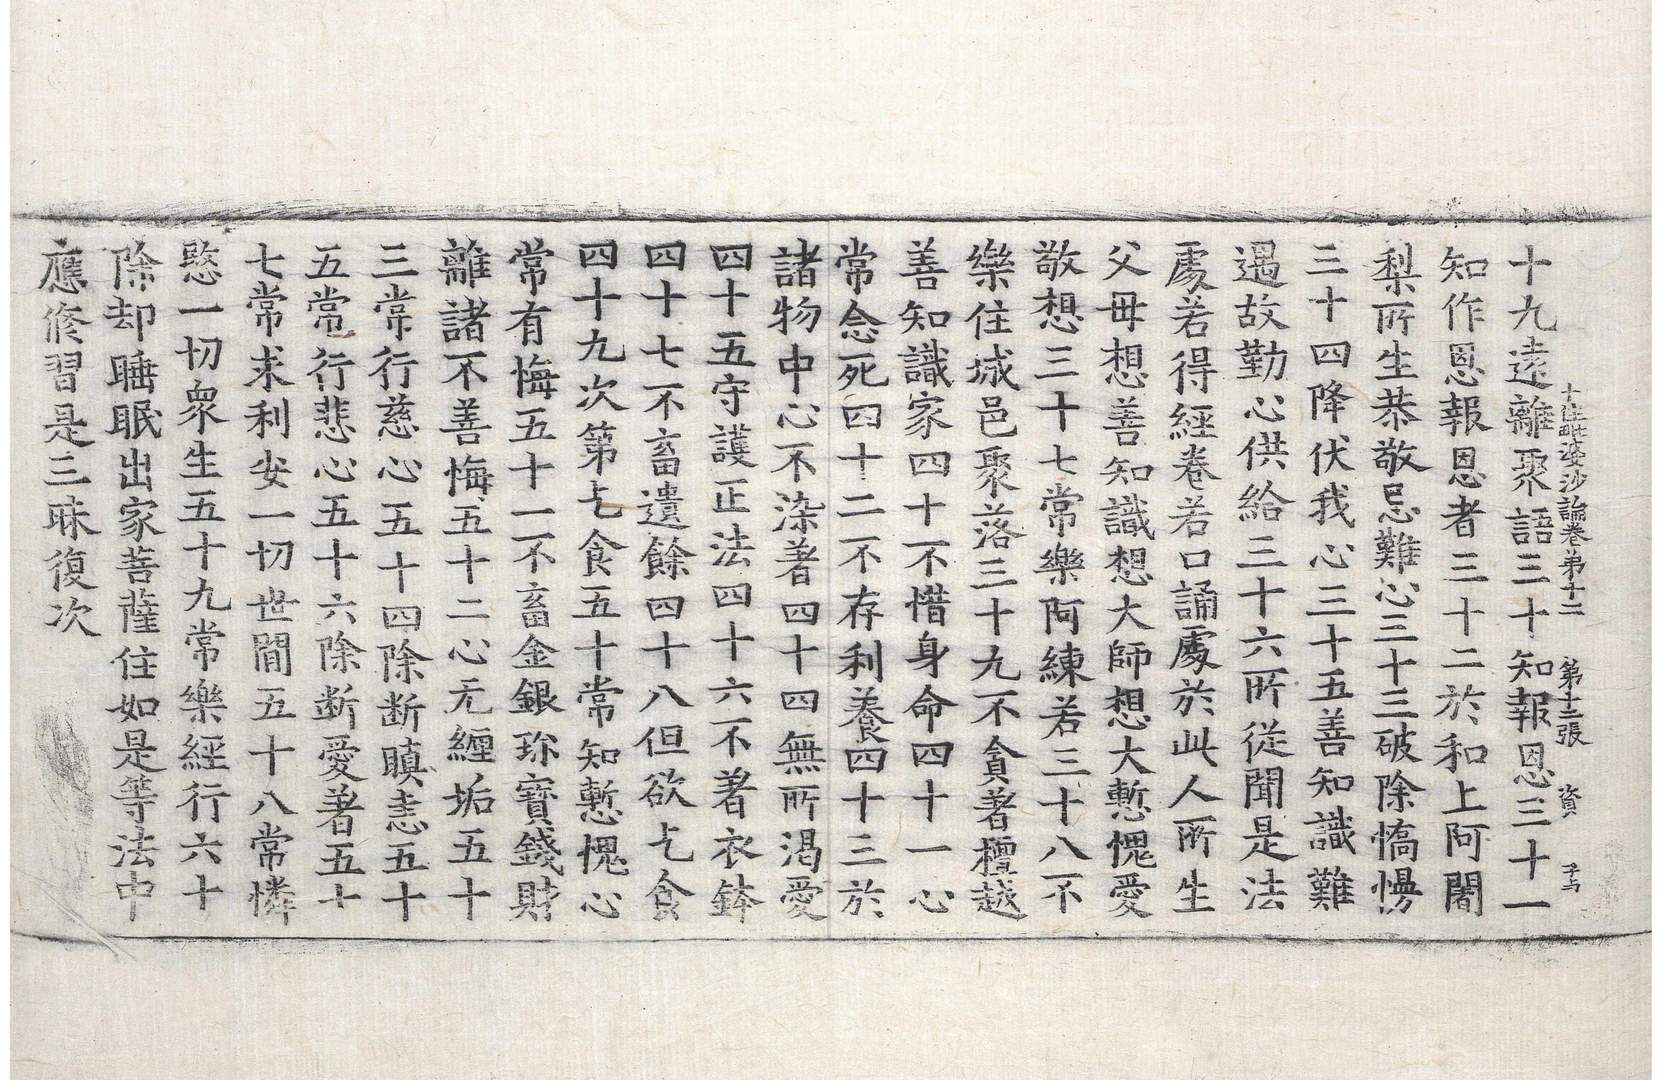 十住毗婆沙論卷第十二 第十二張 資
十九遠離聚語三十知報恩三十一
知作恩報恩者三十二於和上阿闍
梨所生恭敬忌難心三十三破除憍慢
三十四降伏我心三十五善知識難
遇故勤心供給三十六所從聞是法
處若得經卷若口誦處於此人所生
父母想善知識想大師想大慙愧愛
敬想三十七常樂阿練若三十八不
樂住城邑聚落三十九不貪著檀越
善知識家四十不惜身命四十一心
常念死四十二不存利養四十三於
諸物中心不染著四十四無所渴愛
四十五守護正法四十六不著衣鉢
四十七不畜遺餘四十八但欲乞食
四十九次第乞食五十常知慙愧心
常有悔五十一不畜金銀珎寶錢財
離諸不善悔五十二心无纏垢五十
三常行慈心五十四除断瞋恚五十
五常行悲心五十六除断愛著五十
七常求利安一切世閒五十八常憐
愍一切衆生五十九常樂經行六十
除却睡眠出家菩薩住如是等法中
應修習是三昧復次